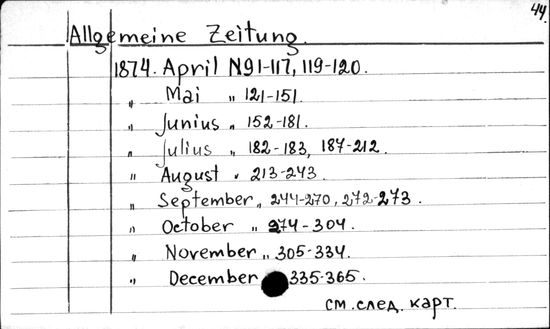 44.
Allgemeine Zeitung.
1874. April N91-117, 119-120.
„ Mai „ 121-151.
„ Junius „ 152-181.
„ Julius „ 182-183, 187-212.
„ August „ 213-243.
„ September „ 244-270, 272-273.
„ October „ 274-304.
„ November „ 305-334.
„ December 335-365.
см. след. карт.